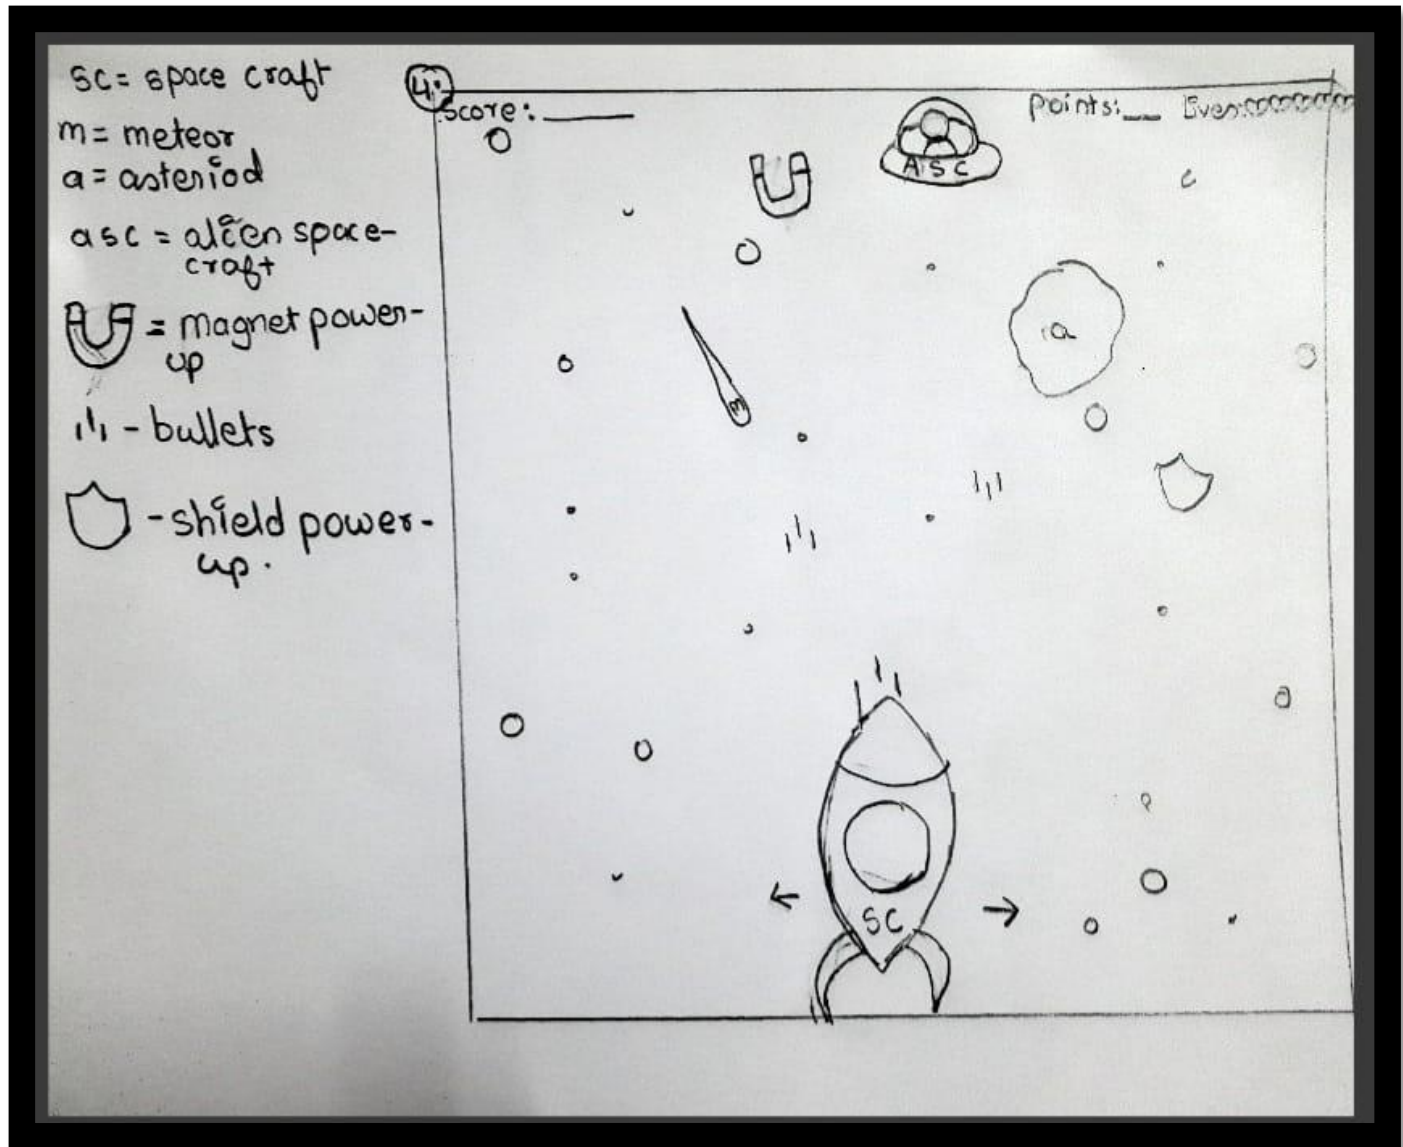 SC = space craft
m = meteor
a = asteriod
asc = alien space-
craft
= magnet power-
up
- bullets
- shield power-
up.
4.
Score: ___
Points: __
ASC
a
m
SC